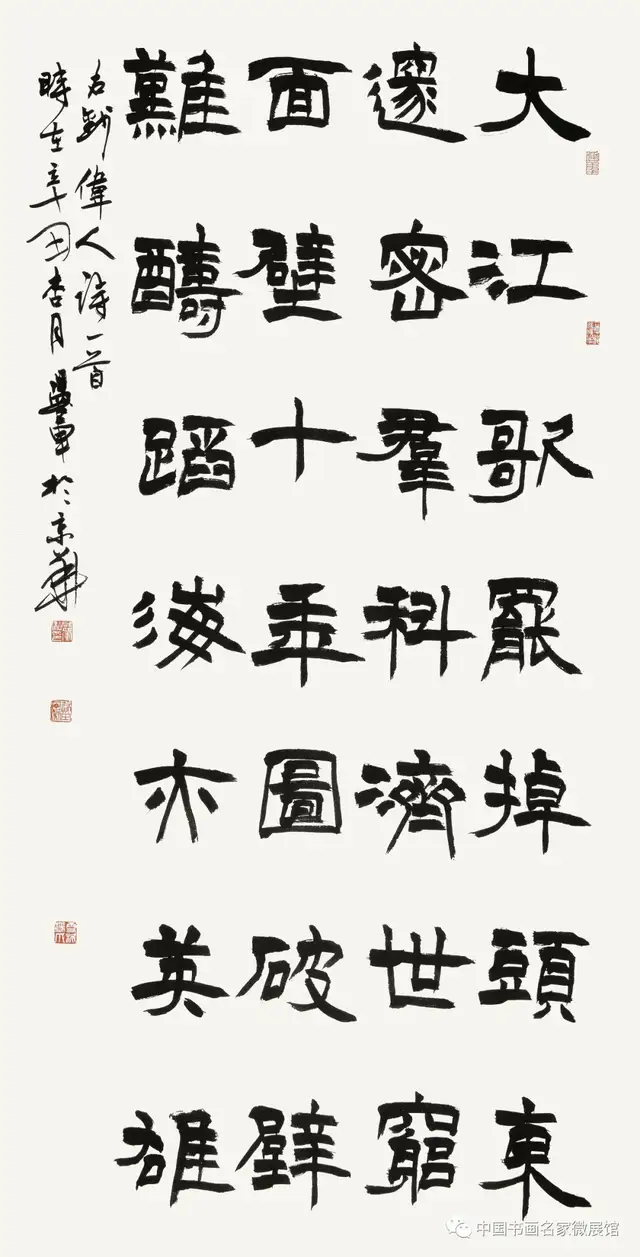 大江歌罷掉頭東
邃密羣科濟世窮
面壁十年圖破壁
難醻蹈海亦英雄
右錄偉人詩一首
時在辛丑杏月於京華
中国书画名家微展馆